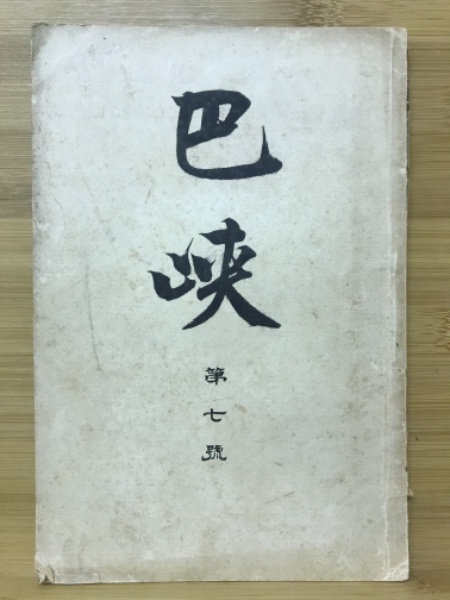 巴峡
第七號